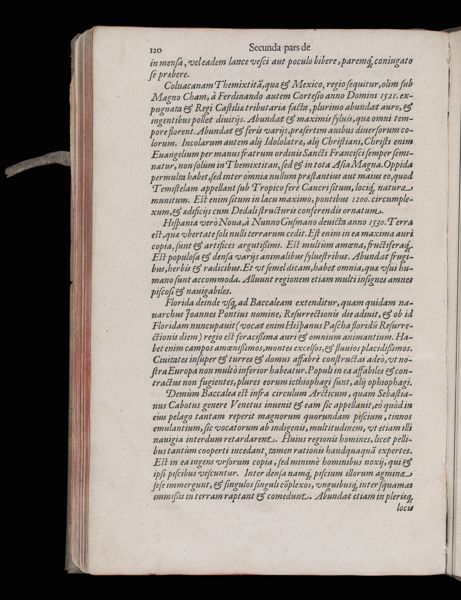 120 Secunda pars de
in mensa, vel eadem lance vesci aut poculo bibere, paremq́, coniugato
se præbere.
Coluacanam Themixtitã, quæ & Mexico, regio sequitur, olim sub
Magno Cham, à Ferdinando autem Cortesio anno Domini 1521. ex-
pugnata & Regi Castiliæ tributaria facta, plurimo abundat auro, &
ingentibus pollet diuitijs. Abundat & maximis syluis, quæ omni tem-
pore florent. Abundat & feris varijs, præsertim auibus diuersorum co-
lorum. Incolarum autem alij Idololatræ, alij Christiani, Christi enim
Euangelium per manus fratrum ordinis Sancti Francisci semper semi-
natur, non solùm in Themixtitan, sed & in tota Asia Magna. Oppida
permulta habet, sed inter omnia nullum præstantius aut maius eo, quod
Temistelam appellant sub Tropico ferè Cancri situm, locíq́, natura
munitum. Est enim situm in lacu maximo, pontibus 1200. circumple-
xum, & ædificijs cum Dedali structuris conferendis ornatum.
Hispania verò Noua, à Nunno Gusmano deuicta anno 1530. Terra
est, quæ vbertate soli nulli terrarum cedit. Est enim in ea maxima auri
copia, sunt & artifices argutissimi. Est multùm amœna, fructiferaq́,
Est populosa & densa varijs animalibus syluestribus. Abundat frugi-
bus, herbis & radicibus. Et vt semel dicam, habet omnia, quæ vsui hu-
mano sunt accommoda. Alluunt regionem etiam multi insignes amnes
piscosi & nauigabiles.
Florida deinde vsq́, ad Baccaleam extenditur, quam quidam na-
uarchus Joannes Pontius nomine, Resurrectionis die adiuit, & ob id
Floridam nuncupauit (vocat enim Hispanus Pascha floridũ Resurre-
ctionis diem) regio est feracissima auri & omnium animantium. Ha-
bet enim campos amœnissimos, montes excelsos, & fluuios placidissimos.
Ciuitates insuper & turres & domus affabrè constructas adeò, vt no-
stra Europa non multò inferior habeatur. Populi in ea affabiles & con-
tractus non fugientes, plures eorum icthiophagi sunt, alij ophiophagi.
Demùm Baccalea est infra circulum Arcticum, quam Sebastia-
nus Cabotus genere Venetus inuenit & eam sic appellauit, eò quòd in
eius pelago tantam reperit magnorum quorundam piscium, tinnos
emulantium, sic vocatorum ab indigenis, multitudinem, vt etiam illi
nauigia interdum retardarent. Huius regionis homines, licet pelli-
bus tantùm cooperti incedant, tamen rationis haudquaquã expertes.
Est in ea ingens vrsorum copia, sed minimè hominibus noxij, qui &
ipsi piscibus vescuntur. Inter densa namq́, piscium illorum agmina
sese immergunt, & singulos singuli cõplexos, vnguibusq́, inter squamas
immissis in terram raptant & comedunt. Abundat etiam in plerisq́,
locis